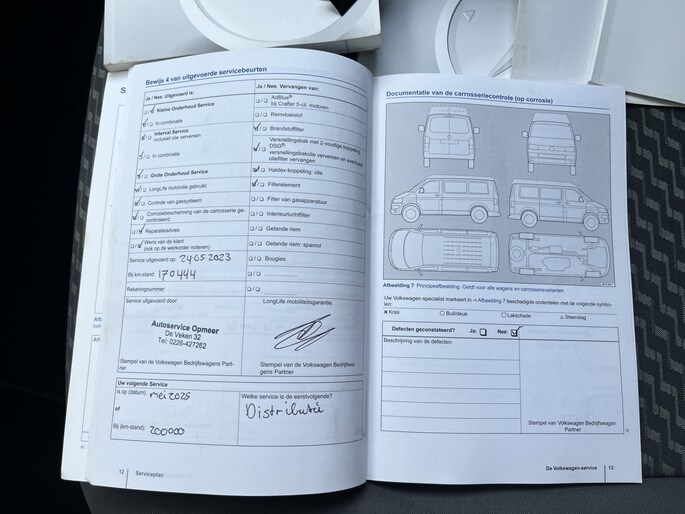 Bewijs 4 van uitgevoerde servicebeurten
Ja / Nee. Uitgevoerd is:
Kleine Onderhoud Service
In combinatie
Interval Service
Inclusief olie verversen
In combinatie
Grote Onderhoud Service
LongLife motorolie gebruikt
Controle van gassysteem
Corrosiebescherming van de carrosserie ge-
controleerd
Reparatieadvies
Wens van de klant
(ook op de werkorder noteren)
Service uitgevoerd op: 24-05-2023
Bij km-stand: 170444
Rekeningnummer:
Service uitgevoerd door:
Autoservice Opmeer
De Veken 32
Tel: 0226-427262
Stempel van de Volkswagen Bedrijfswagens Part-
ner
Ja / Nee. Vervangen van:
AdBlue®
bij Crafter 5-cil. motoren
Remvloeistof
Brandstoffilter
Versnellingsbak met 2-voudige koppeling
DSG®:
versnellingsbakolie verversen en eventueel
oliefilter vervangen
Haldex-koppeling: olie
Filterelement
Filter van gasapparatuur
Interieurluchtfilter
Getande riem
Getande riem: spanrol
Bougies
LongLife mobiliteitsgarantie:
Stempel van de Volkswagen Bedrijfswa-
gens Partner
Uw volgende Service
is op (datum): mei 2025
of
Bij (km-stand): 200000
Welke service is de eerstvolgende?
Distributie
12 Serviceplan
Documentatie van de carrosseriecontrole (op corrosie)
Afbeelding 7 Principeafbeelding: Geldt voor alle wagens en carrosserievarianten.
Uw Volkswagen-specialist markeert in ⇒ Afbeelding 7 beschadigde onderdelen met de volgende symbo-
len:
× Kras
○ Buil/deuk
□ Lakschade
△ Steenslag
Defecten geconstateerd? Ja: Nee:
Beschrijving van de defecten:
Stempel van Volkswagen Bedrijfswagens
Partner
De Volkswagen-service 13